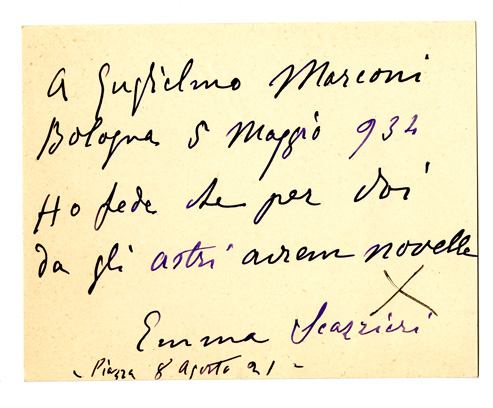 A Guglielmo Marconi
Bologna 5 Maggio 934
Ho fede che per Voi
da gli astri avrem novelle
Emma Scazzieri
- Piazza 8 Agosto 21 -